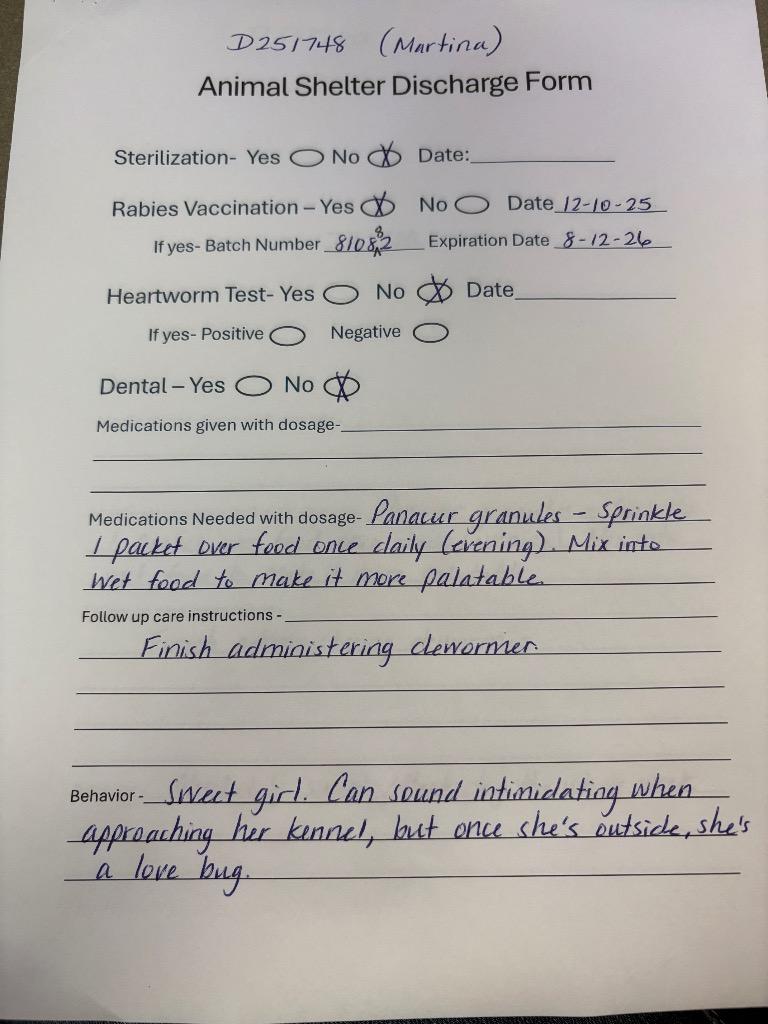 D251748 (Martina)
Animal Shelter Discharge Form
Sterilization- Yes No X Date:
Rabies Vaccination – Yes X No Date 12-10-25
If yes- Batch Number 810882 Expiration Date 8-12-26
Heartworm Test- Yes No X Date
If yes- Positive Negative
Dental – Yes No X
Medications given with dosage-
Medications Needed with dosage- Panacur granules - Sprinkle
1 packet over food once daily (evening). Mix into
wet food to make it more palatable.
Follow up care instructions -
Finish administering dewormer.
Behavior - Sweet girl. Can sound intimidating when
approaching her kennel, but once she's outside, she's
a love bug.